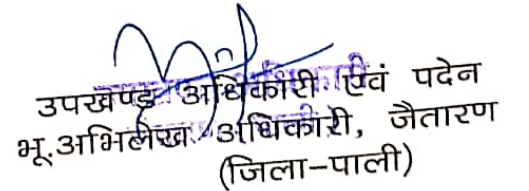 उपखण्ड अधिकारी एवं पदेन
भू.अभिलेख अधिकारी, जैतारण
(जिला-पाली)